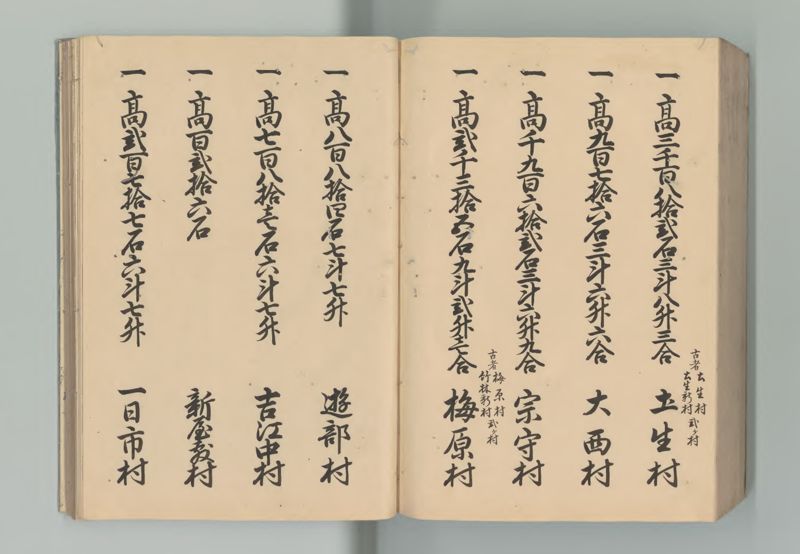 一 高三千百八拾弐石三斗八升三合
古者 土生村 土生新村 弐ヶ村
土生村
一 高九百七拾六石三斗六升六合 大西村
一 高千九百六拾弐石三斗六升九合 宗守村
一 高弐千三拾五石九斗弐升壱合
古者 梅原村 竹林新村 弐ヶ村
梅原村
一 高八百八拾四石七斗七升 遊部村
一 高七百八拾壱石六斗七升 吉江中村
一 高百弐拾六石 新屋敷村
一 高弐百七拾七石六斗七升 一日市村